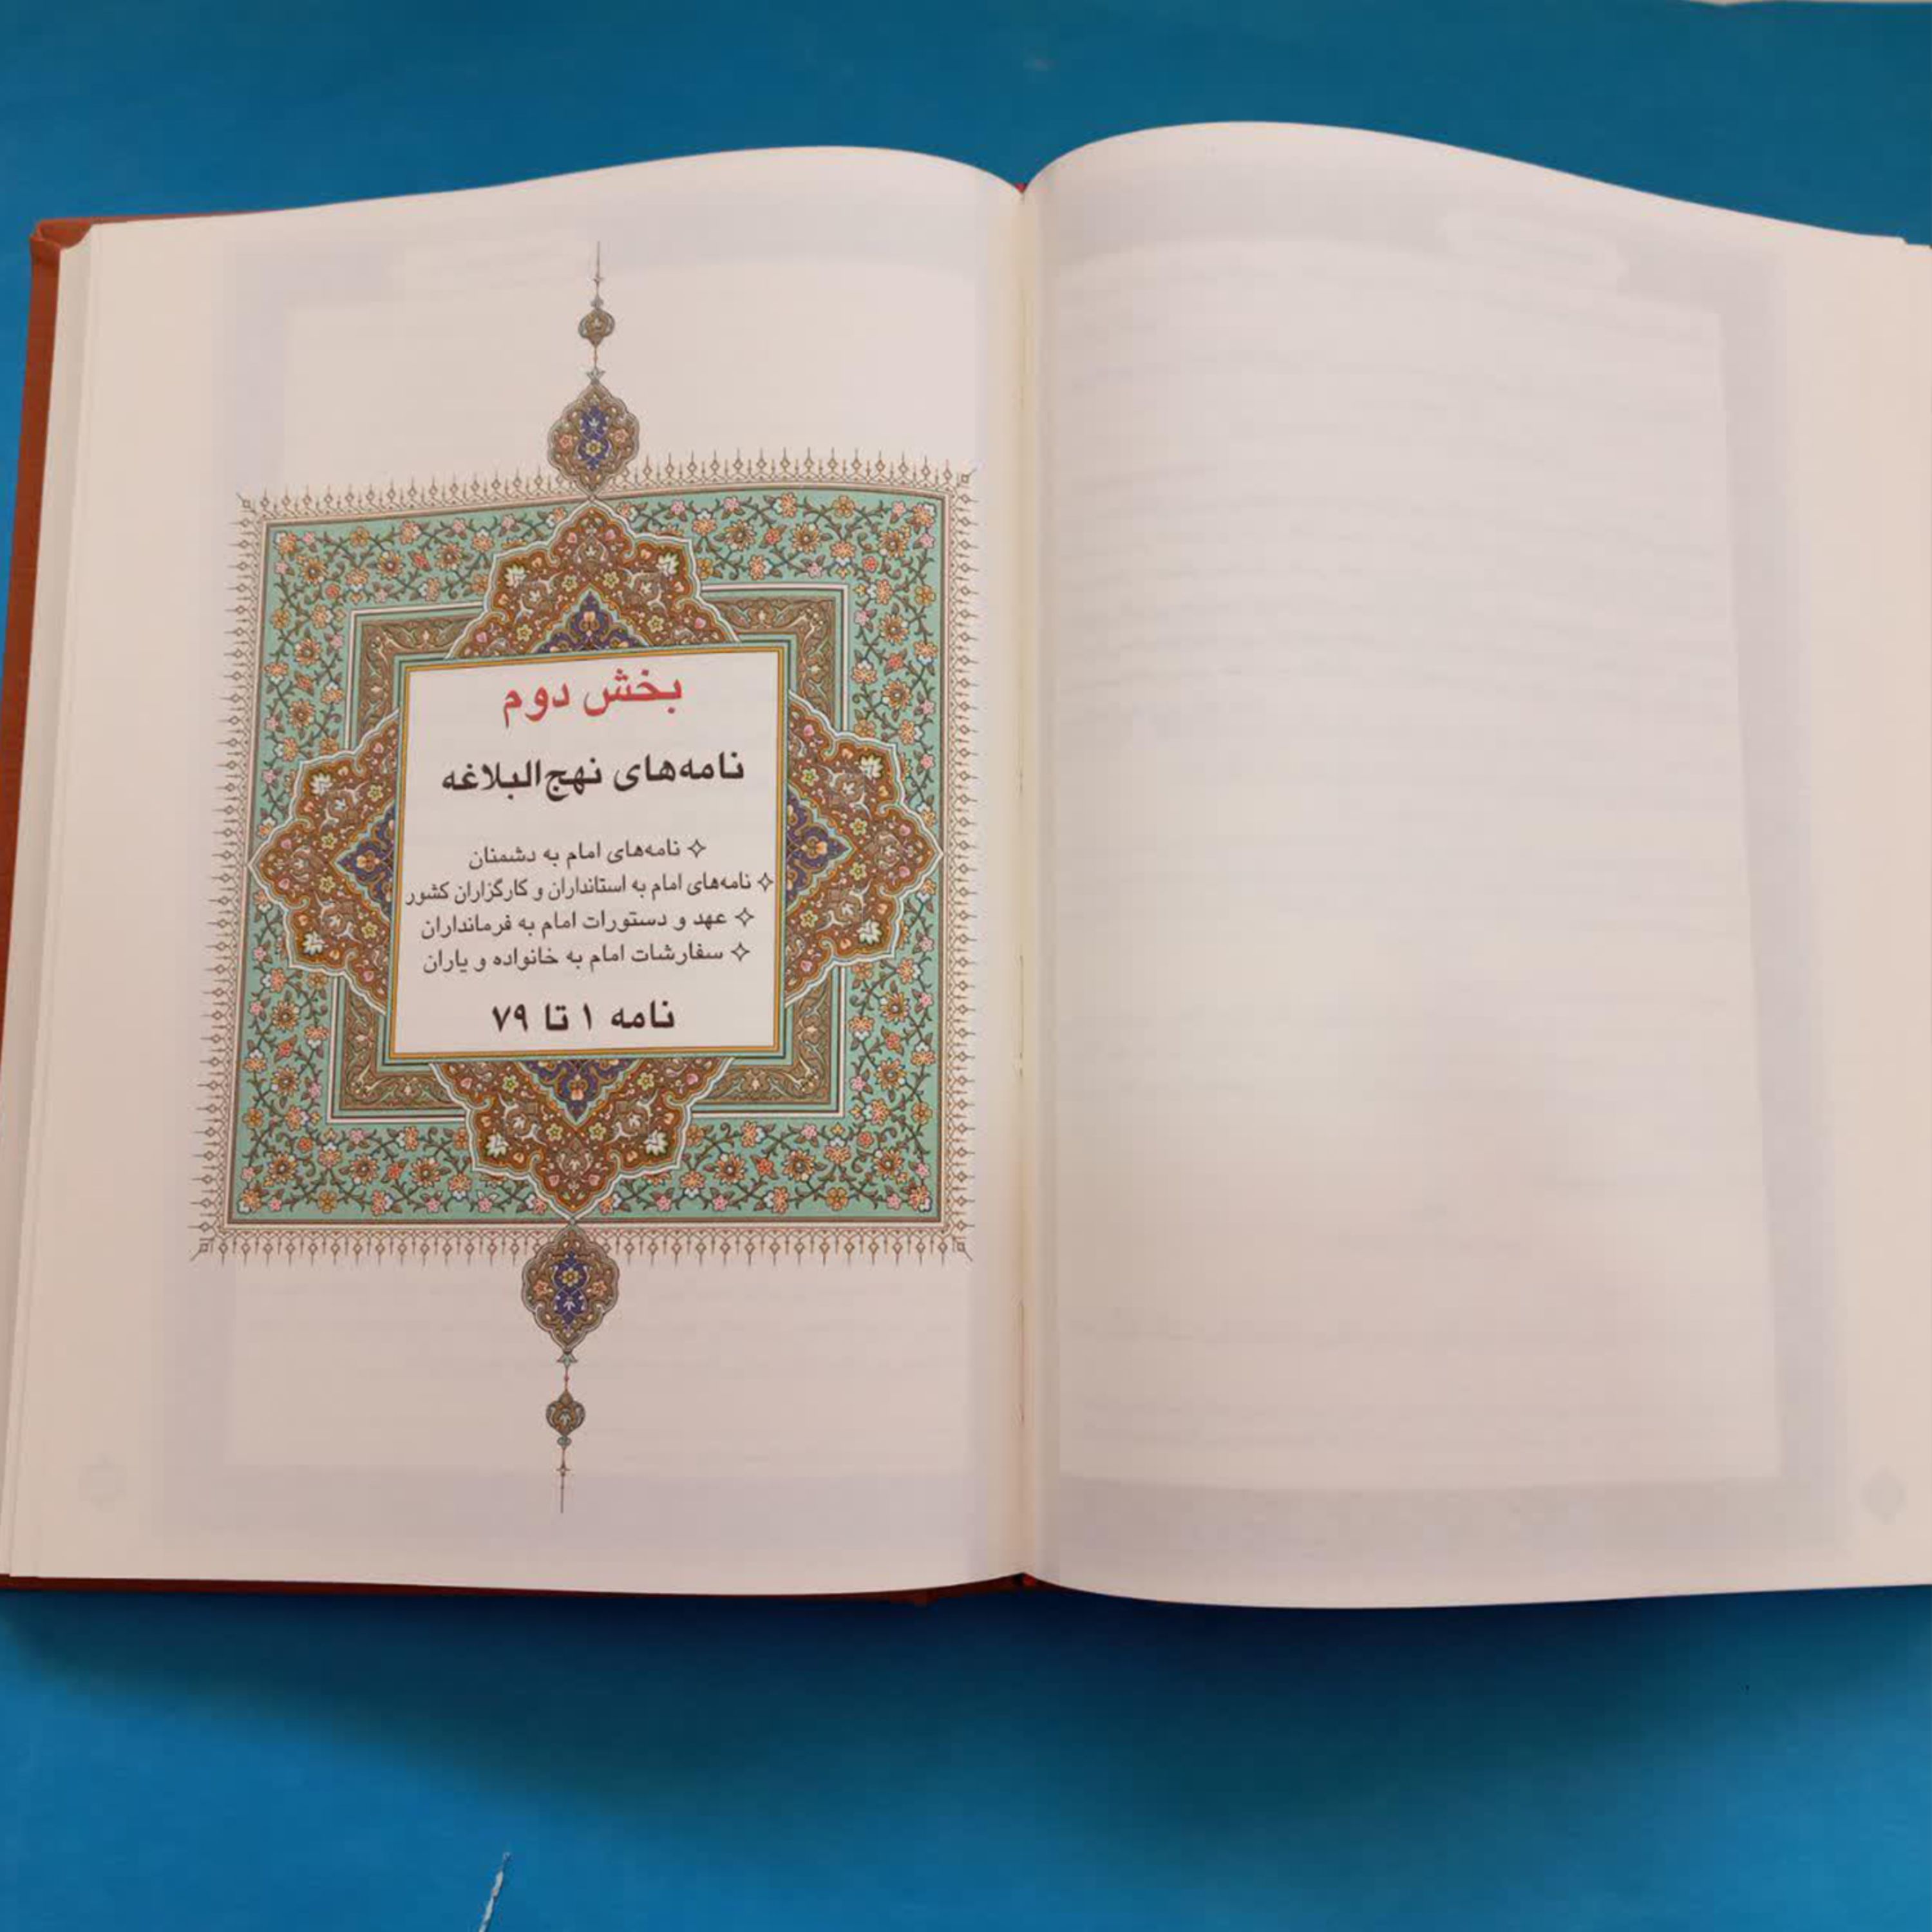 بخش دوم
نامه‌های نهج‌البلاغه
✧ نامه‌های امام به دشمنان
✧ نامه‌های امام به استانداران و کارگزاران کشور
✧ عهد و دستورات امام به فرمانداران
✧ سفارشات امام به خانواده و یاران
نامه ۱ تا ۷۹